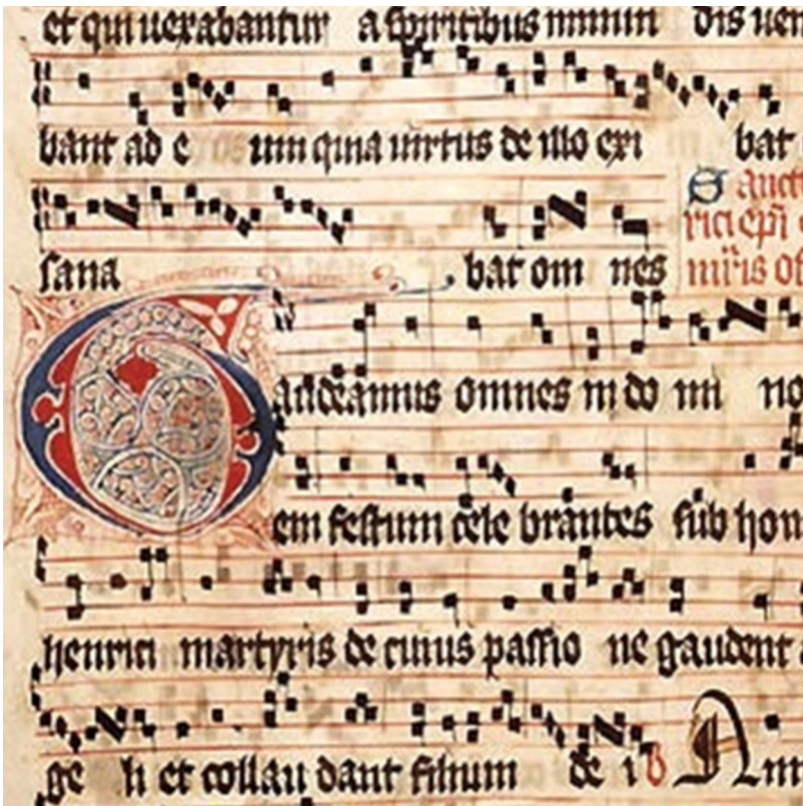 et qui uexabantur a spiritibus inmun dis uen
bant ad e um quia uirtus de illo exi bat
sana bat om nes
Sanct
rici epi
mris of
Gaudeamus omnes in do mi no
em festum cele brantes sub hon
henrici martyris de cuius passio ne gaudent
ge li et collau dant filium de i V Am